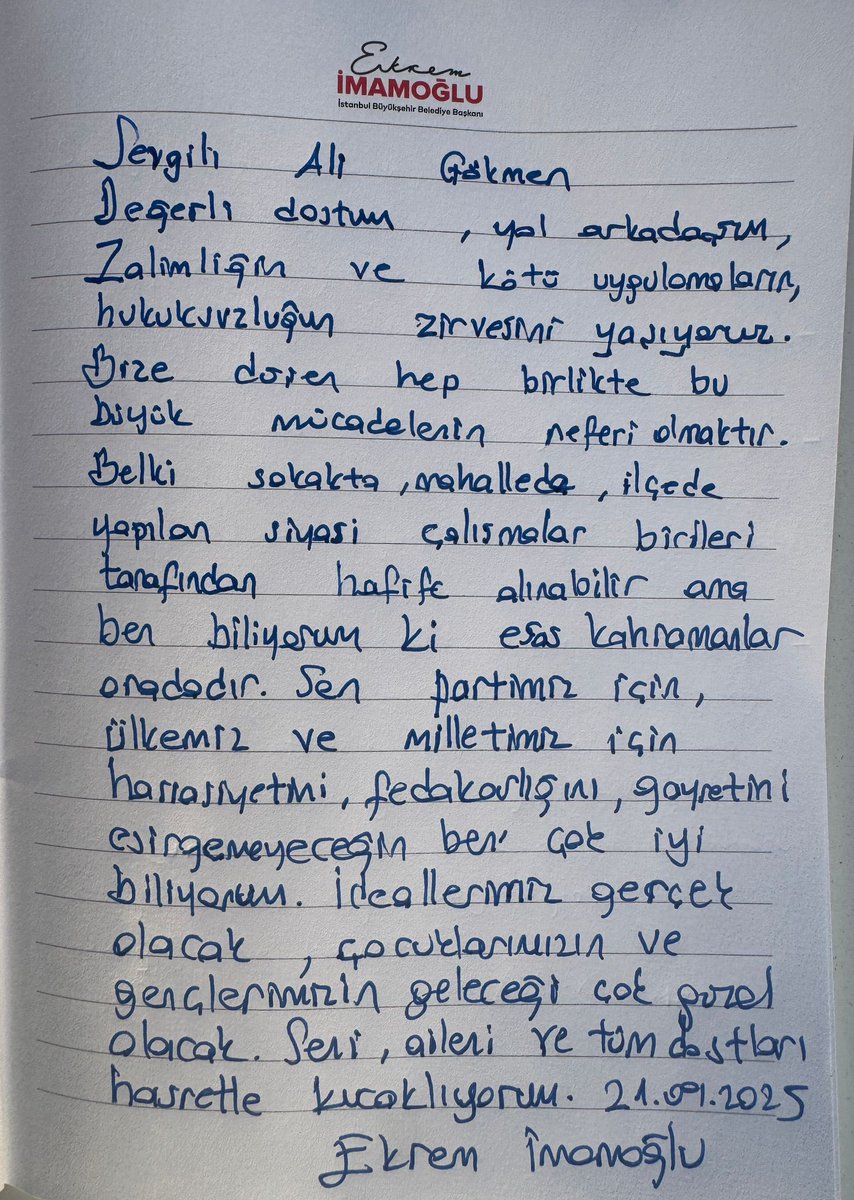 Ekrem
İMAMOĞLU
İstanbul Büyükşehir Belediye Başkanı
Sevgili Ali Gökmen
Değerli dostum, yol arkadaşım,
Zalimliğin ve kötü uygulamaların,
hukuksuzluğun zirvesini yaşıyoruz.
Bize düşen hep birlikte bu
büyük mücadelenin neferi olmaktır.
Belki sokakta, mahallede, ilçede
yapılan siyasi çalışmalar birileri
tarafından hafife alınabilir ama
ben biliyorum ki esas kahramanlar
oradadır. Sen partimiz için,
ülkemiz ve milletimiz için
hassasiyetini, fedakarlığını, gayretini
esirgemeyeceğin ben çok iyi
biliyorum. İdeallerimiz gerçek
olacak, çocuklarımızın ve
gençlerimizin geleceği çok güzel
olacak. Seni, aileni ve tüm dostları
hasretle kucaklıyorum. 21.09.2025
Ekrem İmamoğlu